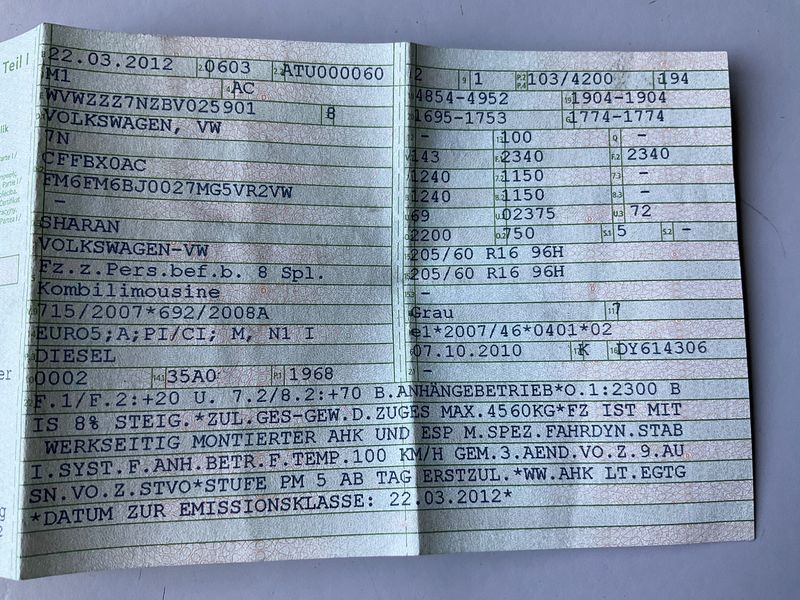 Teil I
22.03.2012 2.1 0603 2.2 ATU000060
M1 4 AC
WVWZZZ7NZBV025901 3 8
VOLKSWAGEN, VW
7N
CFFBX0AC
FM6FM6BJ0027MG5VR2VW
-
SHARAN
VOLKSWAGEN-VW
Fz.z.Pers.bef.b. 8 Spl.
Kombilimousine
715/2007*692/2008A
EURO5;A;PI/CI; M, N1 I
DIESEL
0002 14.1 35A0 P.1 1968
2 9 1 P.2 P.4 103/4200 T 194
4854-4952 19 1904-1904
1695-1753 G 1774-1774
- 13 100 Q -
143 F.1 2340 F.2 2340
1240 7.2 1150 7.3 -
1240 8.2 1150 8.3 -
69 U.2 02375 U.3 72
2200 O.2 750 S.1 5 S.2 -
205/60 R16 96H
205/60 R16 96H
-
Grau 11 7
e1*2007/46*0401*02
07.10.2010 17 K 16 DY614306
-
F.1/F.2:+20 U. 7.2/8.2:+70 B.ANHÄNGEBETRIEB*O.1:2300 B
IS 8% STEIG.*ZUL.GES-GEW.D.ZUGES MAX.4560KG*FZ IST MIT
WERKSEITIG MONTIERTER AHK UND ESP M.SPEZ.FAHRDYN.STAB
I.SYST.F.ANH.BETR.F.TEMP.100 KM/H GEM.3.AEND.VO.Z.9.AU
SN.VO.Z.STVO*STUFE PM 5 AB TAG ERSTZUL.*WW.AHK LT.EGTG
*DATUM ZUR EMISSIONSKLASSE: 22.03.2012*